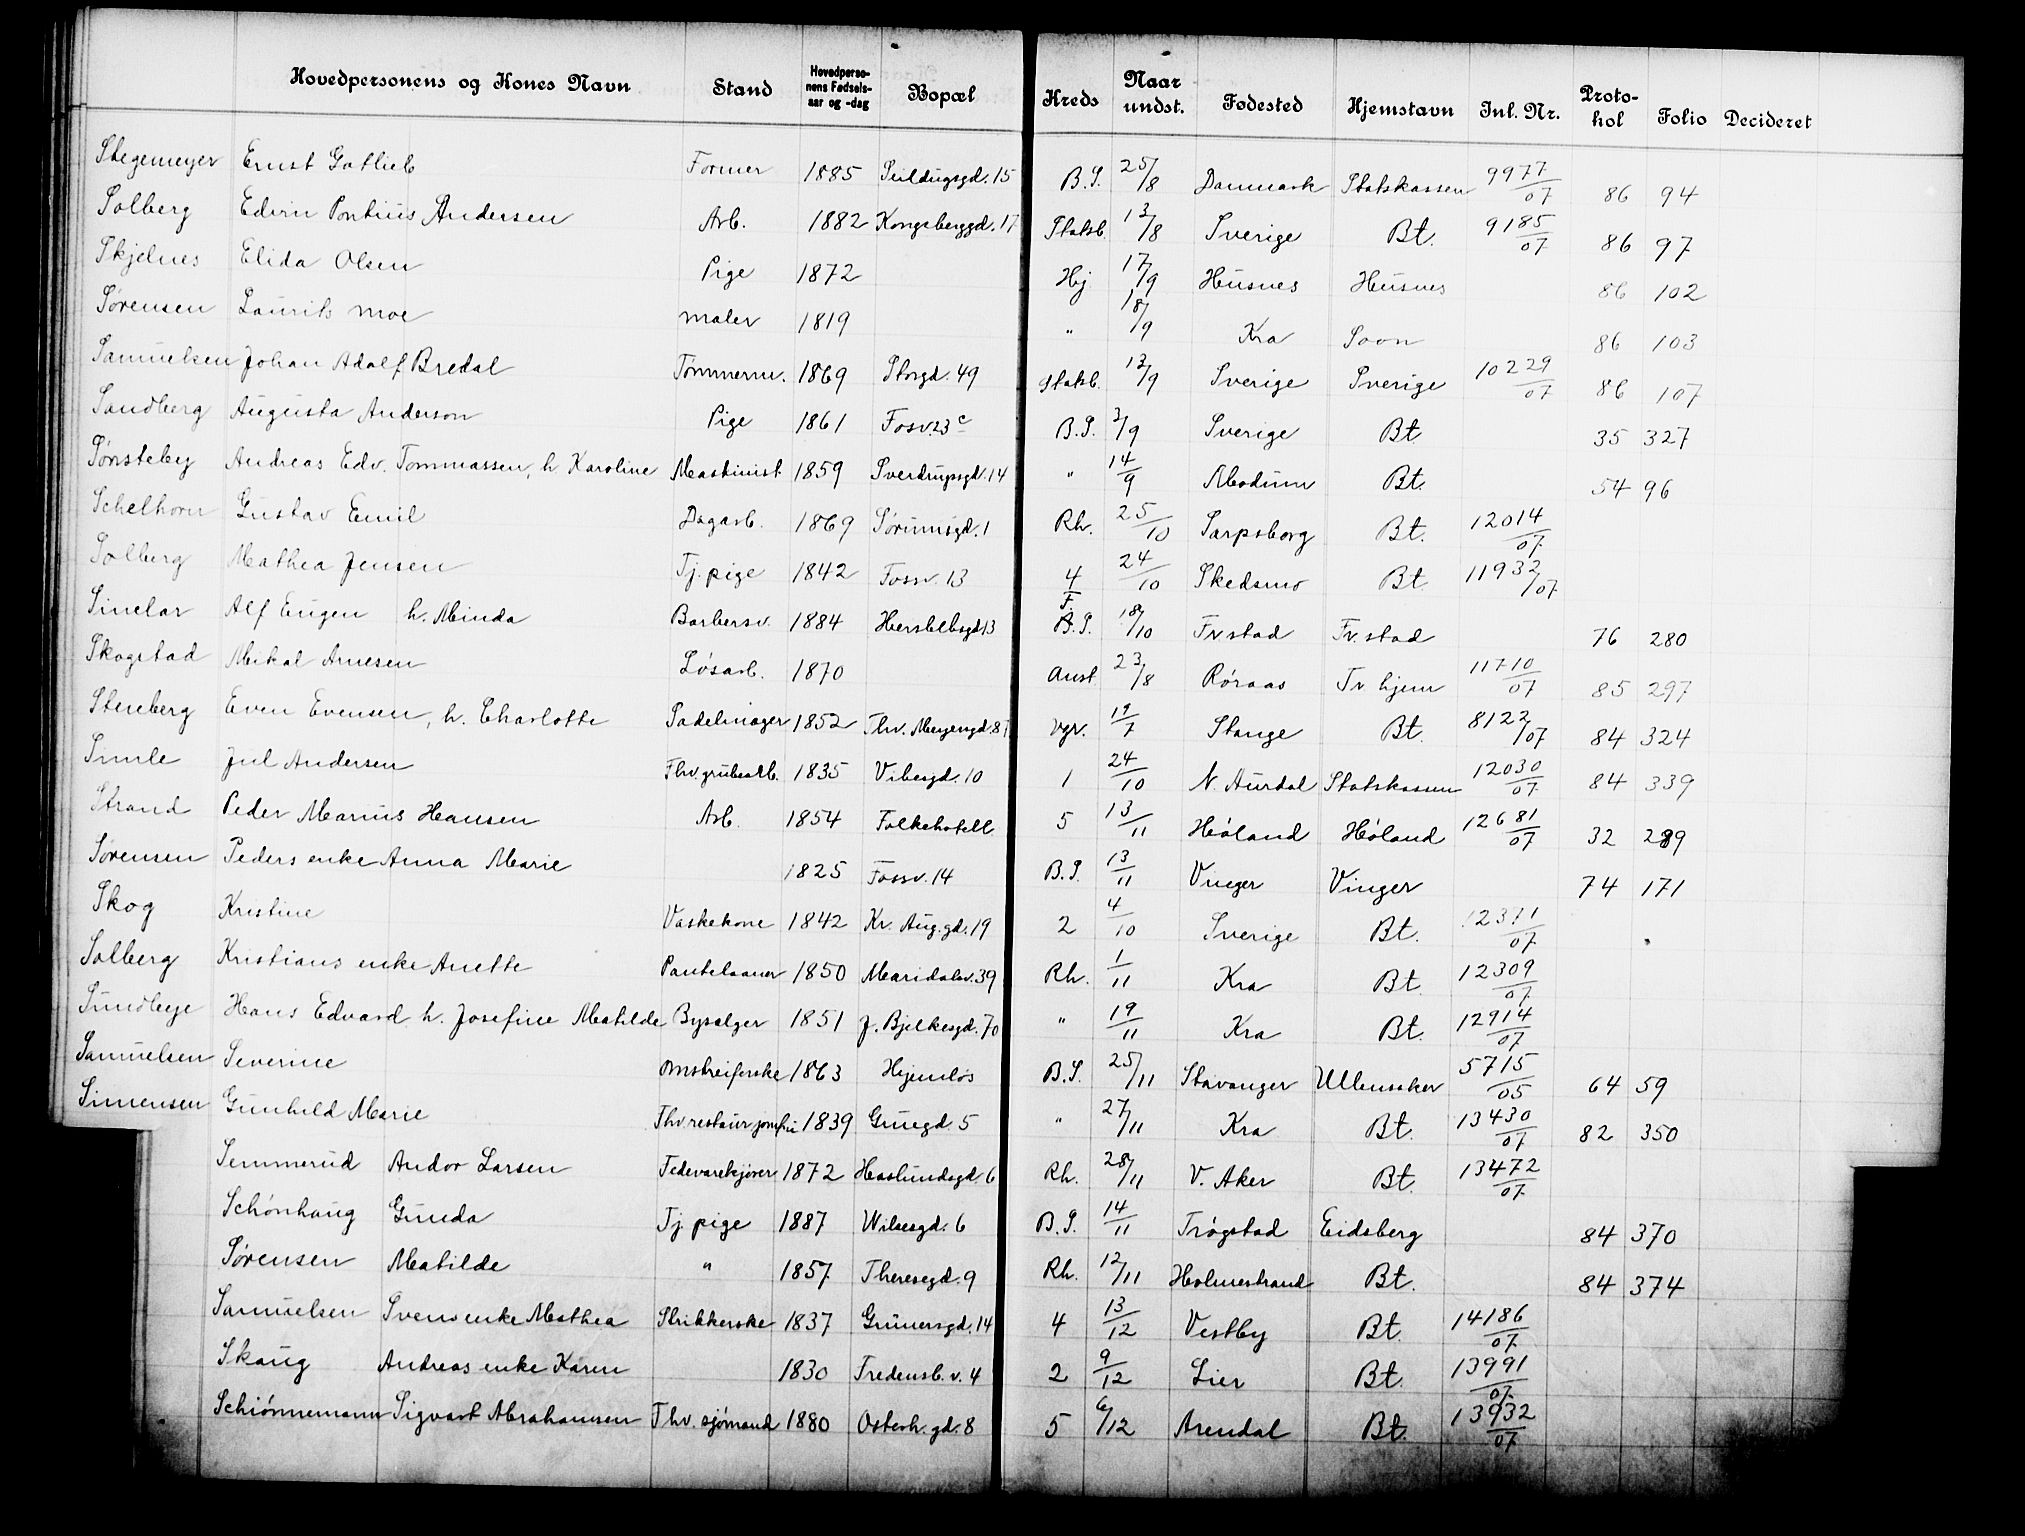 Hovedpersonens og Kones Navn Stand Hovedpersonens Fødselsaar og -dag Bopæl Kreds Naar undst. Fødested Hjemstavn Inl. Nr. Protokol Folio Decideret
Stegemeyer Ernst Gotlieb Former 1885 15 B.S. 25/8 Danmark Statskassen 9977/07 86 94
Solberg Edvin Pontius Andersen Arb. 1882 Kongsberggd. 17 Statsb. 13/8 Sverige Bt. 9185/07 86 97
Skjelnes Elida Olsen Pige 1872 Hj 17/9 Husnes Husnes 86 102
Sørensen Laurits Moe Maler 1819 " 18/9 Kra Soon 86 103
Samuelsen Johan Adolf Bredal Tømmerm. 1869 Storgd. 49 Statsb. 13/9 Sverige Sverige 10229/07 86 107
Sandberg Augusta Anderson Pige 1861 Fosv. 23 c B.S. 3/9 Sverige Bt 35 327
Sønsteby Andreas Edv. Tommassen, h. Karoline Maskinist 1859 Sverdrupsgd. 14 " 14/9 Modum Bt. 54 96
Schelhorn Gustav Emil Dagarb. 1869 Sørumsgd. 1 Rh. 25/10 Sarpsborg Bt. 12014/07
Solberg Mathea Jensen Tj. pige 1842 Fossv. 13 4/F. 24/10 Skedsmo Bt. 11932/07
Sinclar Alf Eugen h. Minda Barbersv. 1884 Herslebsgd 13 B.S. 18/10 Fr.stad Fr.stad 76 280
Skogstad Mikal Arnesen Løsarb. 1870 Anst. 23/8 Røraas Tr. hjem 11710/07 85 297
Stenberg Even Evensen, h. Charlotte Sadelmager 1852 Thv. Meyersgd. 87 Vgr. 19/7 Stange Bt. 8122/07 84 324
Simle Jul Andersen Fhv. grubearb. 1835 Vibesgd. 10 1 24/10 N. Aurdal Statskassen 12030/07 84 339
Strand Peder Marius Hansen Arb. 1854 Folkehotell 5 13/11 Høland Høland 12681/07 32 289
Sørensen Peders enke Anna Marie 1825 Fossv. 14 B.S. 13/11 Vinger Vinger 74 171
Skog Kristine Vaskekone 1842 Kr. Aug.gd. 19 2 4/10 Sverige Bt. 12371/07
Solberg Kristians enke Anette Pantelaaner 1850 Maridalsv. 39 Rh. 1/11 Kra Bt. 12309/07
Sundbye Hans Edvard h. Josefine Matilde Bysælger 1851 J. Bjelkesgd. 70 " 19/11 Kra Bt. 12914/07
Samuelsen Severine Omstreiferske 1863 Hjemløs B.S. 25/11 Stavanger Ullensaker 5715/05 64 59
Simensen Gunhild Marie Fhv. restaur jomfru 1839 Gruegd. 5 " 27/11 Kra Bt. 13430/07 82 350
Semmerud Andor Larsen Fedevarekjører 1872 Haslundsgd. 6 Rh. 28/11 V. Aker Bt. 13472/07
Schønhaug Gunda Tj. pige 1887 Wilsesgd. 6 B.S. 14/11 Trøgstad Eidsberg 84 370
Sørensen Matilde " 1857 Theresegd. 9 Rh. 12/11 Holmestrand Bt. 84 374
Samuelsen Svens enke Mathea Strikkerske 1837 Grünersgd. 14 4 13/12 Vestby Bt. 14186/07
Skaug Andreas enke Karen 1830 Fredensb. v. 4 2 9/12 Lier Bt. 13991/07
Schiønnemann Sigvart Abrahamsen Fhv. sjømand 1880 Osterh. gd. 8 5 6/12 Arendal Bt. 13932/07